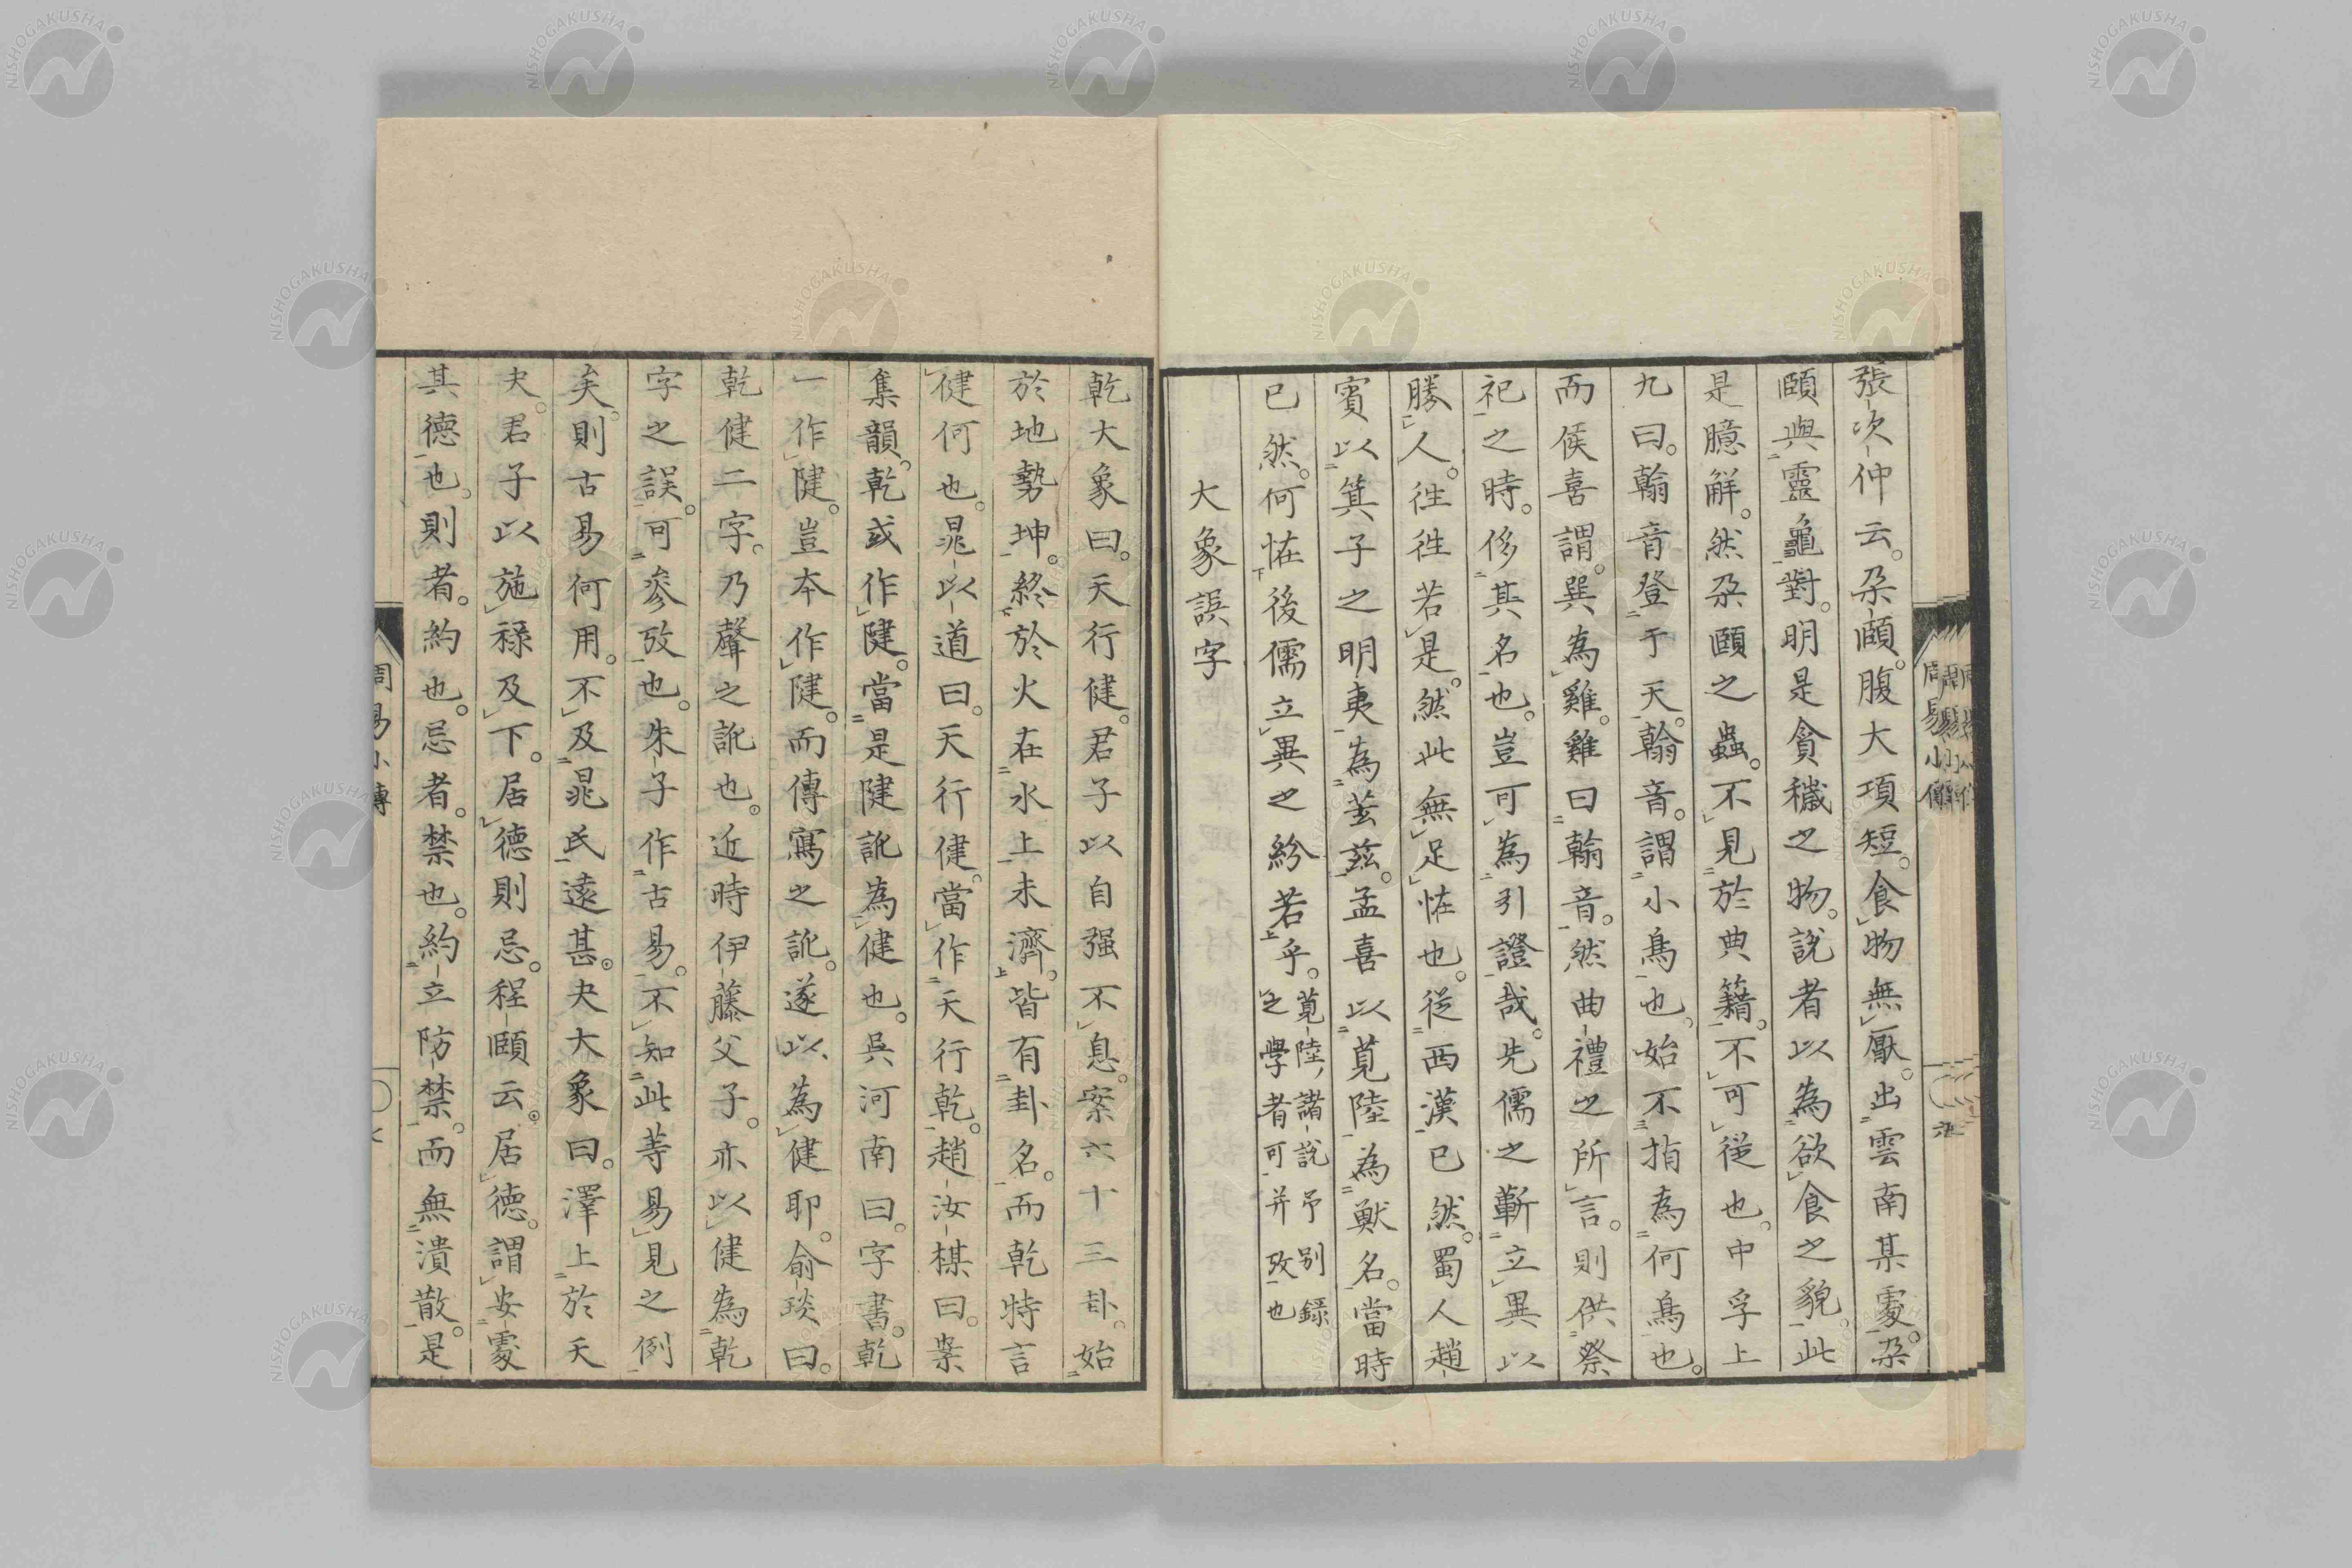 張次仲云。朶頤。腹大項短。食物無厭。出雲南某處。朶
頤與靈龜對。明是貪穢之物。說者以為欲食之貌。此
是臆解。然朶頤之蟲。不見於典籍。不可從也。中孚上
九曰。翰音登于天。翰音。謂小鳥也。始不指為何鳥也。
而侯喜謂。巽為雞。雞曰翰音。然曲禮之所言。則供祭
祀之時。侈其名也。豈可為引證哉。先儒之蘄立異以
勝人。徃徃若是。然此無足恠也。從西漢已然。蜀人趙
賓以箕子之明夷為荄茲。孟喜以莧陸為獸名。當時
已然。何恠後儒立異之紛若乎。莧陸諸說予別錄
之學者可并攷也
大象誤字
乾大象曰。天行健。君子以自强不息。案六十三卦。始
於地勢坤。終於火在水上未濟。皆有卦名。而乾特言
健何也。晁以道曰。天行健。當作天行乾。趙汝楳曰。案
集韻。乾或作揵。當是揵訛為健也。吳河南曰。字書。乾
一作揵。豈本作揵。而傳寫之訛。遂以為健耶。俞琰曰。
乾健二字。乃聲之訛也。近時伊藤父子。亦以健為乾
字之誤。可參攷也。朱子作古易。不知此等易見之例
矣。則古易何用。不及晁氏遠甚。夬大象曰。澤上於天
夬。君子以施祿及下。居德則忌。程頤云。居德。謂安處
其德也。則者。約也。忌者。禁也。約立防禁。而無潰散。是
周易小傳